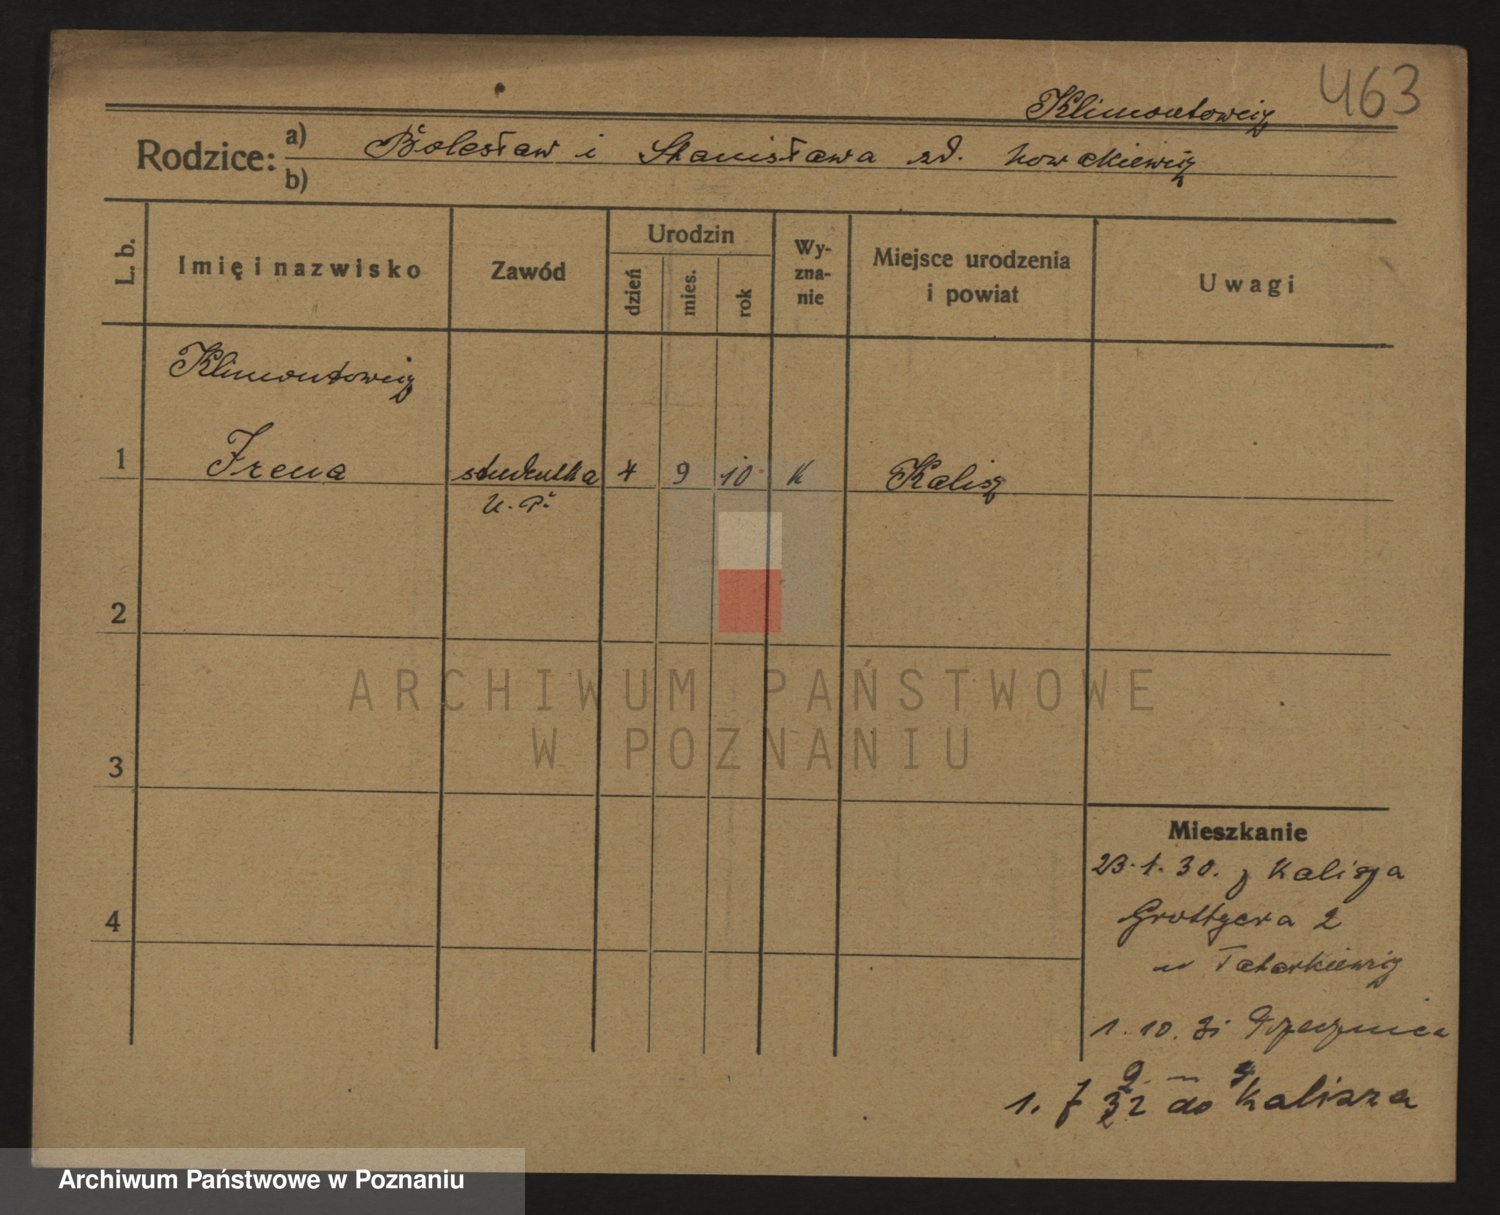 463
Klimontowicz
Rodzice: a) Bolesław i Stanisława zd. Nowakiewicz
b)
L. b.
Imię i nazwisko
Zawód
Urodzin
dzień
mies.
rok
Wy-
zna-
nie
Miejsce urodzenia
i powiat
Uwagi
Klimontowicz
1 Irena studentka 4 9 10 K Kalisz
U. P.
2
3
4
ARCHIWUM PAŃSTWOWE
W POZNANIU
Mieszkanie
23.1.30. z Kalisza
Grottgera 2
u Tatarkiewicz
1. 10. 31
1. 7 32 do Kalisza
Archiwum Państwowe w Poznaniu